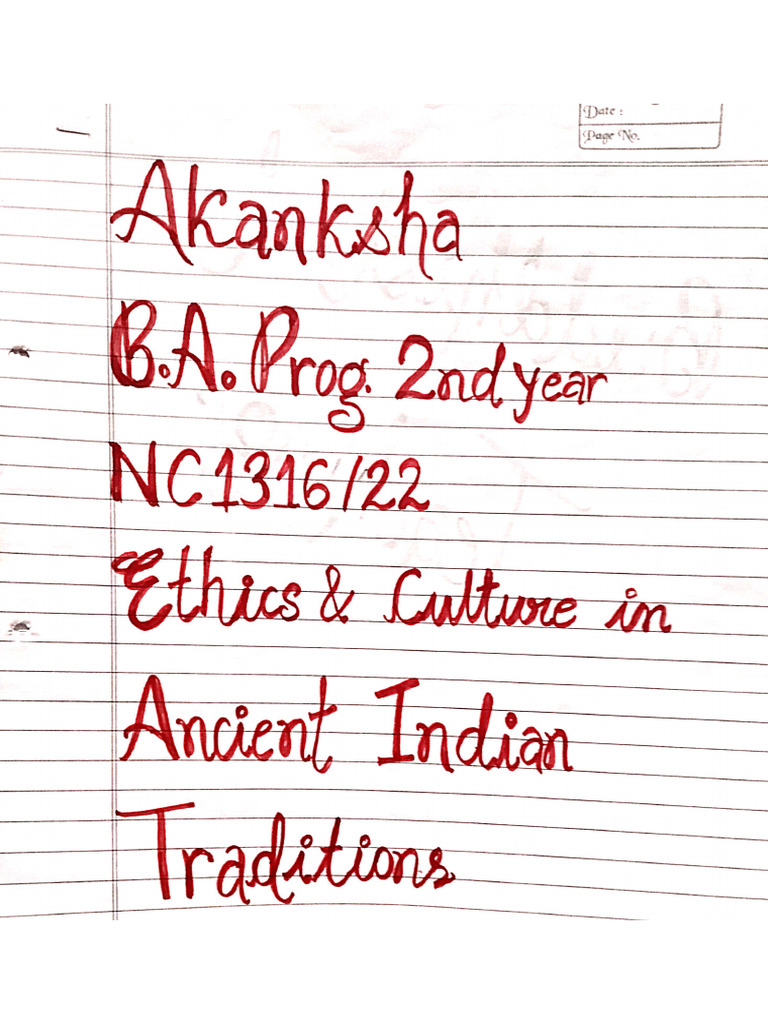 Date :
Page No.
Akanksha
B.A. Prog. 2nd year
NC1316/22
Ethics & Culture in
Ancient Indian
Traditions